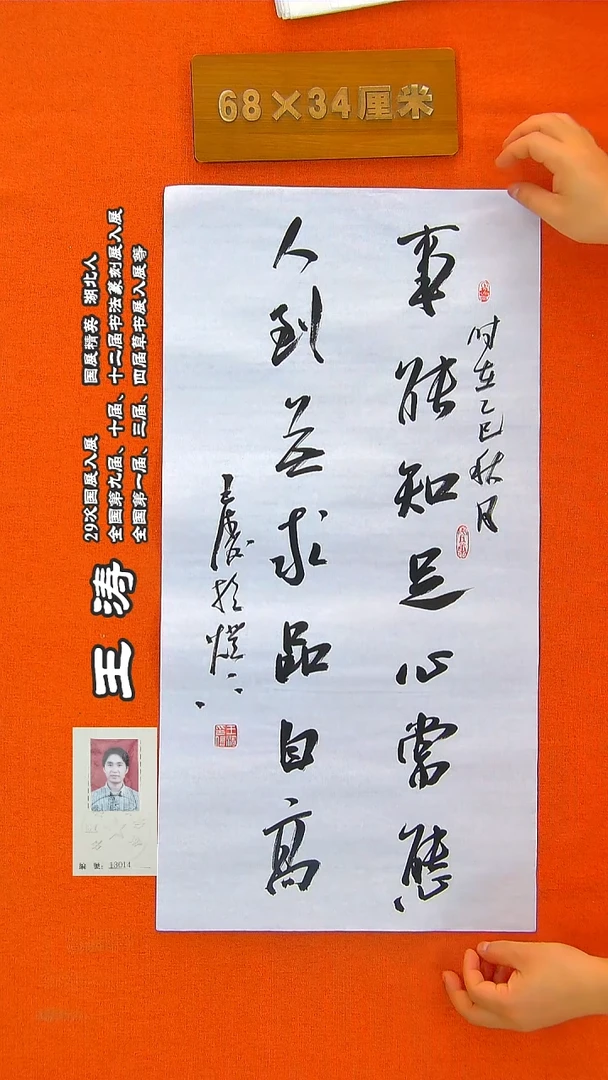 68×34厘米
时在乙巳秋月
事能知足心常態
人到无求品自高
王涛於燈下
王涛
29次国展入展 国展精英 湖北人
全国第九届、十届、十二届书法篆刻展入展
全国第一届、三届、四届草书展入展等
编 号：13014